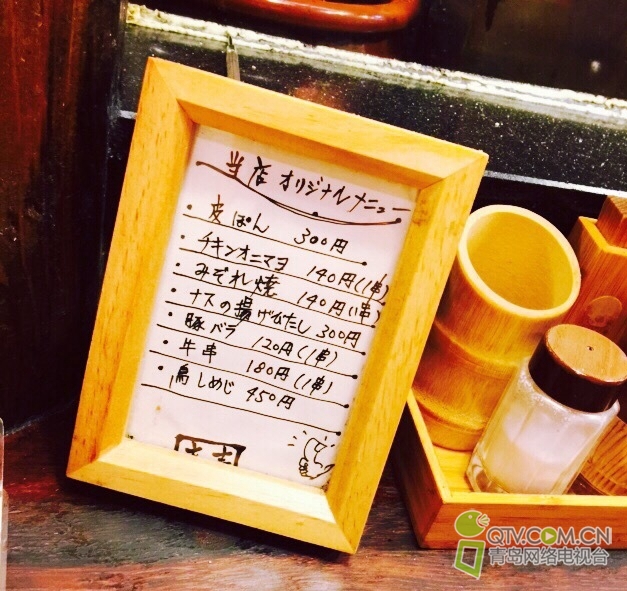 当店オリジナルメニュー
・皮ぽん 300円
・チキンオニマヨ 140円(1串)
・みぞれ焼 140円(1串)
・ナスの揚げひたし 300円
・豚バラ 120円(1串)
・牛串 180円(1串)
・鳥しめじ 450円
QTV.COM.CN
青岛网络电视台